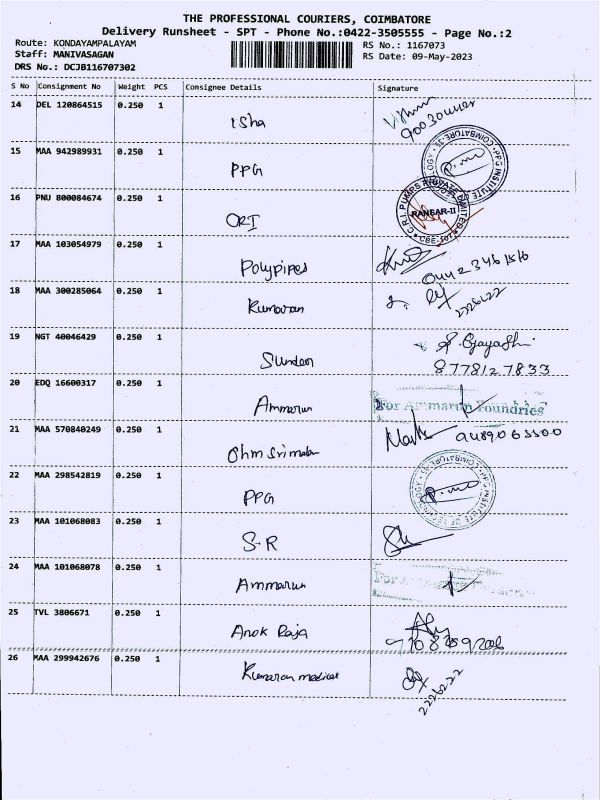 THE PROFESSIONAL COURIERS, COIMBATORE
Delivery Runsheet - SPT - Phone No.:0422-3505555 - Page No.:2
Route: KONDAYAMPALAYAM RS No.: 1167073
Staff: MANIVASAGAN RS Date: 09-May-2023
DRS No.: DCJB116707302
S No Consignment No Weight PCS Consignee Details Signature
14 DEL 120864515 0.250 1
Isha
15 MAA 942989931 0.250 1
PPG
16 PNU 800084674 0.250 1
RANGAR-II
CRI
17 MAA 103054979 0.250 1
Polypipes
18 MAA 300285064 0.250 1
Kumaran
19 NGT 40046429 0.250 1
Sundar
8778127833
20 EDQ 16600317 0.250 1
Ammarun For Ammarun Foundries
21 MAA 570840249 0.250 1
Ohm Srimalan
22 MAA 298542819 0.250 1
PPG
23 MAA 101068083 0.250 1
S-R
24 MAA 101068078 0.250 1
Ammarun
25 TVL 3806671 0.250 1
Anok Raja
26 MAA 299942676 0.250 1
Kumaran medical